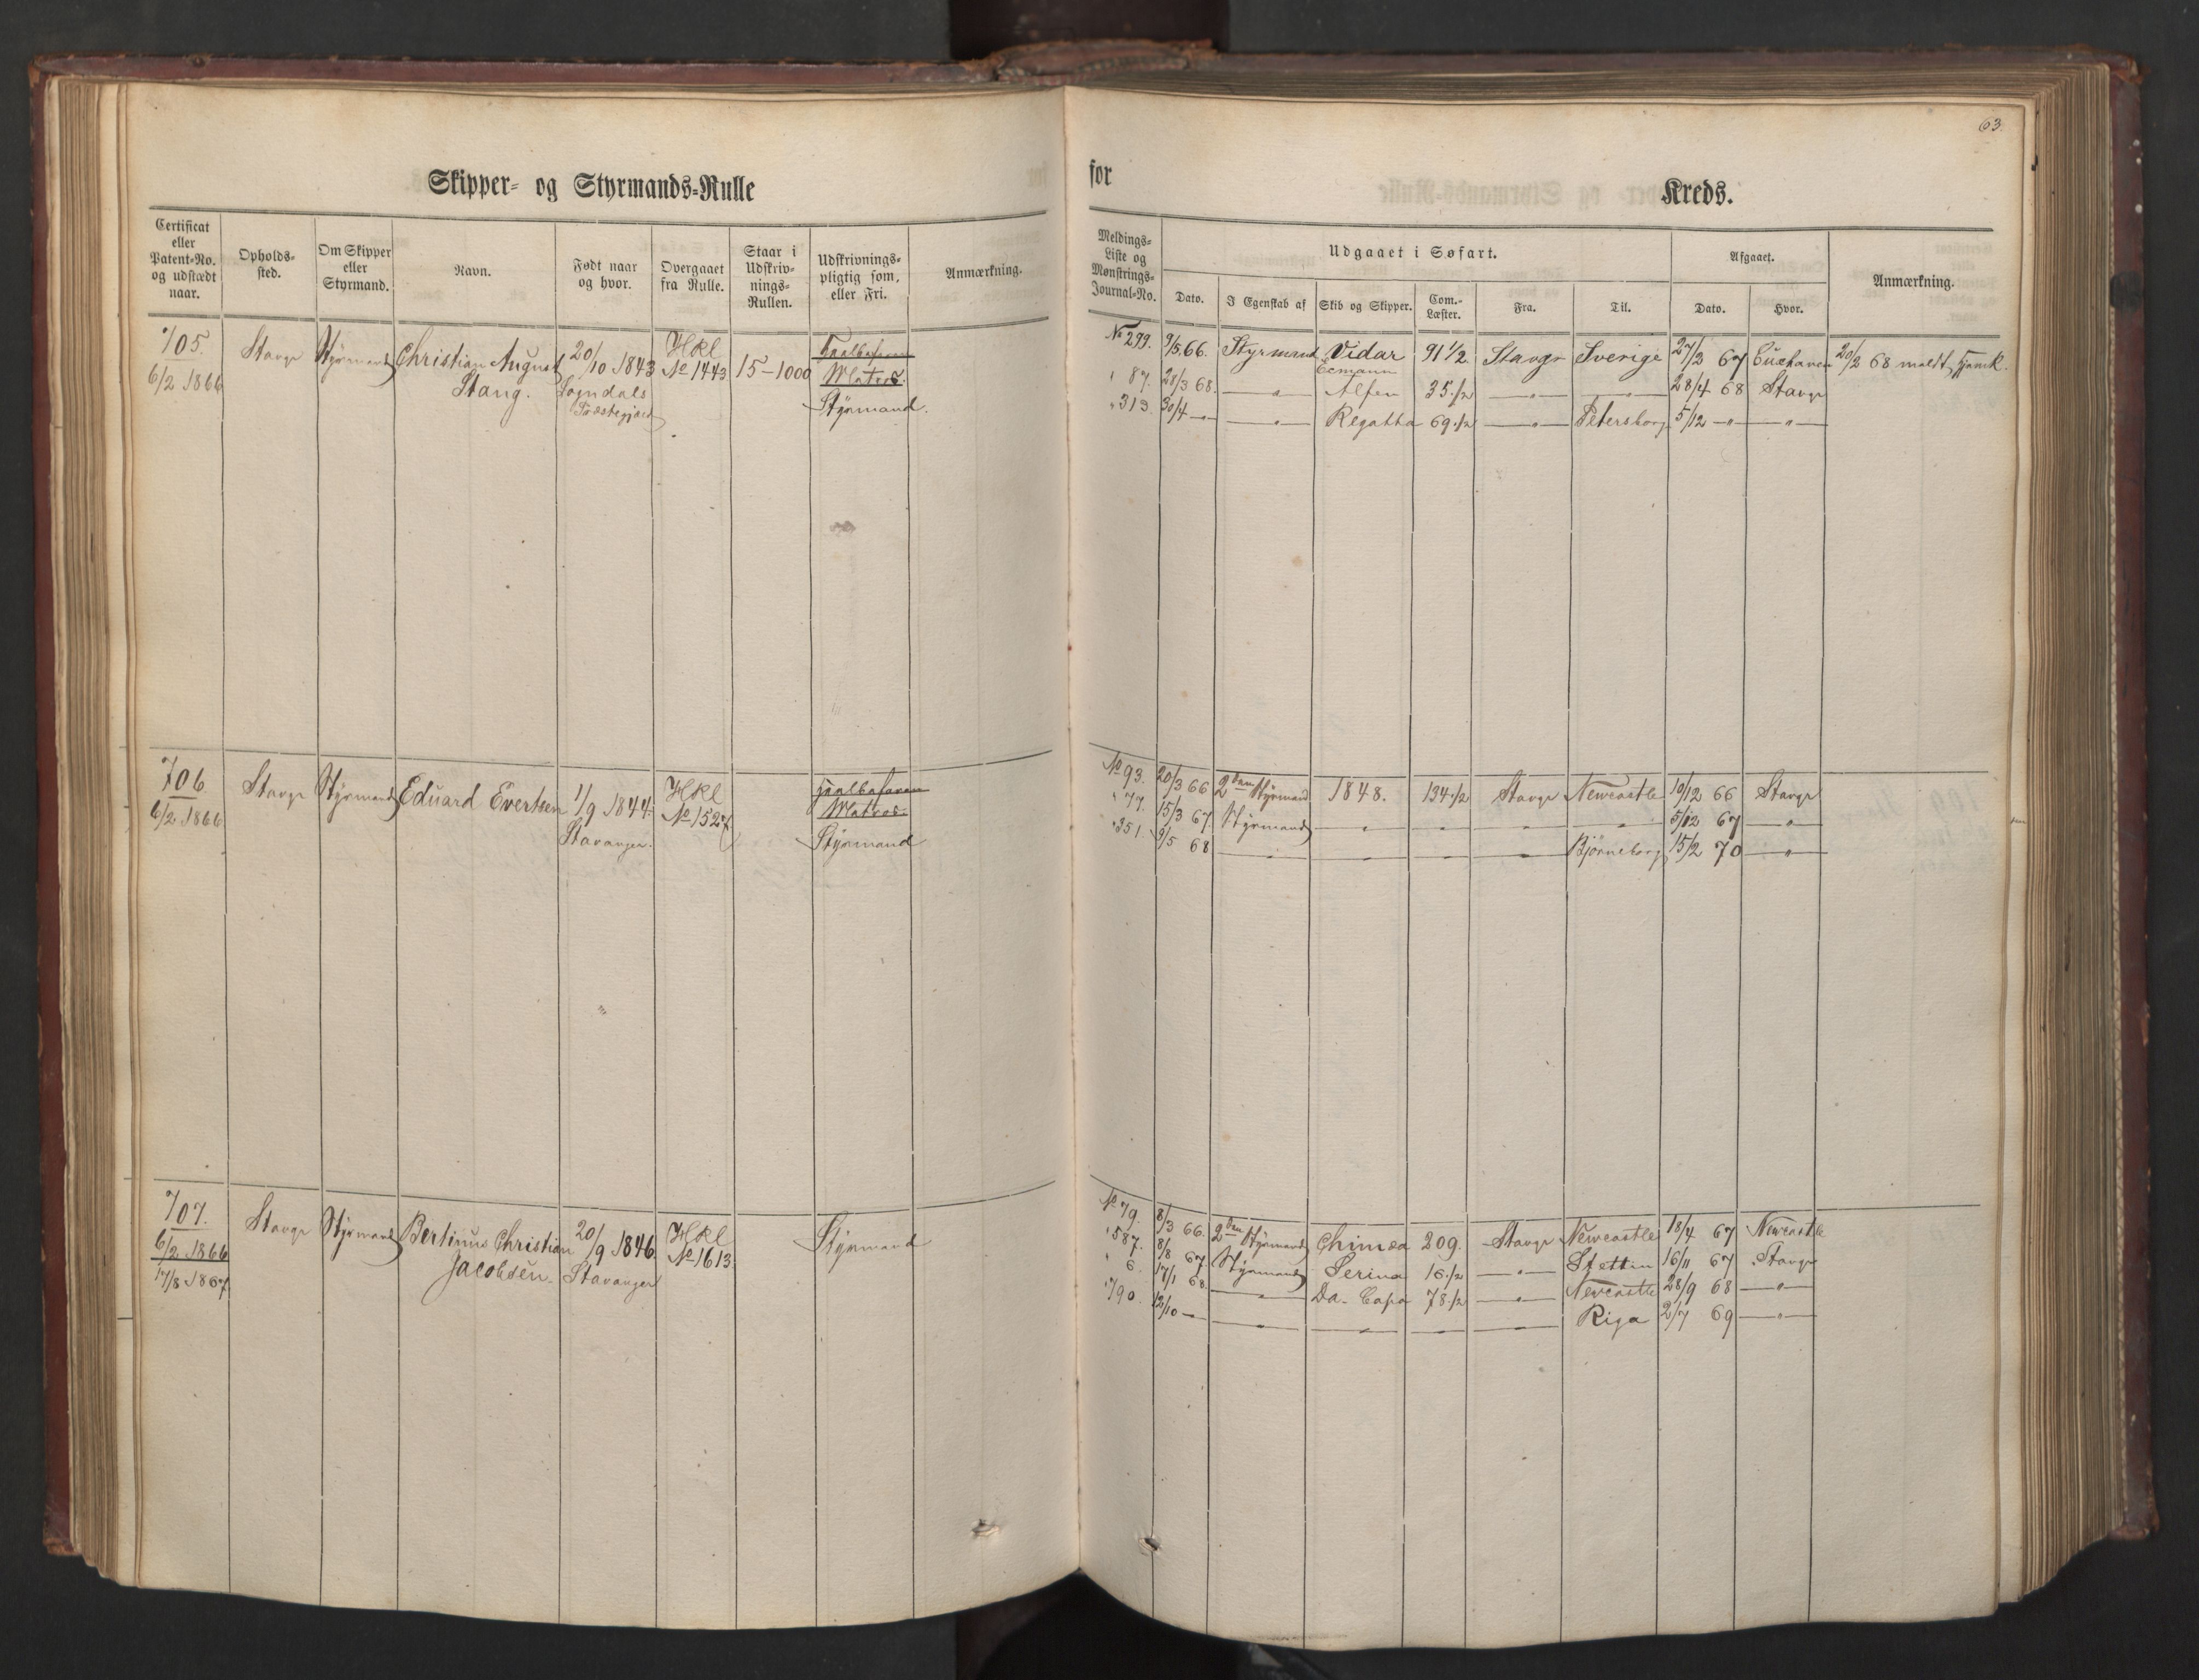 63.
Skipper- og Styrmands-Rulle
for
Kreds.
Certificat eller Patent-No. og udstædt naar.
Opholds-sted.
Om Skipper eller Styrmand.
Navn.
Født naar og hvor.
Overgaaet fra Rulle.
Staar i Udskriv-nings-Rullen.
Udskrivnings-pligtig som, eller Fri.
Anmærkning.
Meldings-Liste og Mønstrings-Journal-No.
Udgaaet i Søfart.
Dato.
I Egenskab af
Skib og Skipper.
Com.-Læster.
Fra.
Til.
Afgaaet.
Dato.
Hvor.
Anmærkning.
705. Stavgr Styrmand Christian August 20/10 1843 Hkl
6/2 1866 Stang. Sogndals No 1443 15-1000 Matros.
Præstegjæld Styrmand.
No 299. 9/5 66. Styrmand Vidar 91 1/2 Stavgr Sverige 27/2 67 Cuxhaven 20/2 68 meldt hjemk.
" 87. 28/3 68. —"— Alfen 35.1/2 —"— —"— 28/4 68 Stavgr
" 313. 30/4 —"— —"— Regatta 69.1/2 —"— Petersborg 5/12 —"— —"—
706. Stavgr Styrmand Eduard Evertsen 1/9 1844. Hkl
6/2 1866 Stavanger. No 1527 Matros.
Styrmand
No 93. 20/3 66 2den Styrmand 1848. 134.1/2 Stavgr Newcastle 10/12 66 Stavgr
" 77. 15/3 67 Styrmand —"— —"— —"— —"— 5/12 67 —"—
" 351. 9/5 68 —"— —"— —"— —"— Bjørneborg 15/2 70 —"—
707. Stavgr Styrmand Bertinus Christian 20/9 1846 Hkl Styrmand
6/2 1866 Jacobsen. Stavanger No 1613
17/8 1867
No 79. 8/3 66. 2den Styrmand Chimæa 209. Stavgr Newcastle 18/4 67 Newcastle
" 587. 8/8 67 Styrmand Serina 16.1/2 —"— Stettin 16/11 67 Stavgr
" 6. 17/1 68. —"— Da. Capo 78.1/2 —"— Newcastle 28/9 68 —"—
" 790. 12/10 —"— —"— —"— —"— —"— Riga 2/7 69 —"—